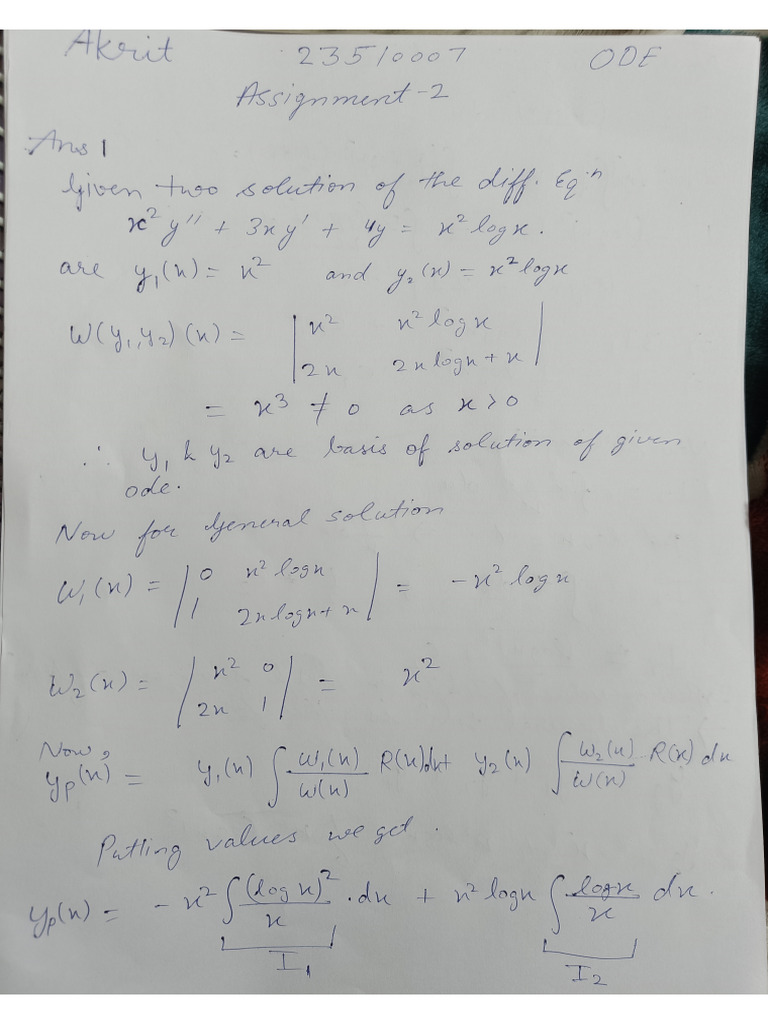 Akrit 23510007 ODE
Assignment-2
Ans 1
Given two solution of the diff. Eqⁿ
x² y'' + 3xy' + 4y = x² log x.
are y₁(x) = x² and y₂(x) = x² log x
W(y₁,y₂)(x) = | x² x² log x |
| 2x 2x log x + x |
= x³ ≠ 0 as x > 0
∴ y₁ & y₂ are basis of solution of given
ode.
Now for General solution
W₁(x) = | 0 x² log x | = - x² log x
| 1 2x log x + x |
W₂(x) = | x² 0 | = x²
| 2x 1 |
Now,
yₚ(x) = y₁(x) ∫ W₁(x)/W(x) R(x)dx + y₂(x) ∫ W₂(x)/W(x) R(x) dx
Putting values we get.
yₚ(x) = - x² ∫ (log x)²/x . dx + x² log x ∫ log x/x dx.
I₁ I₂